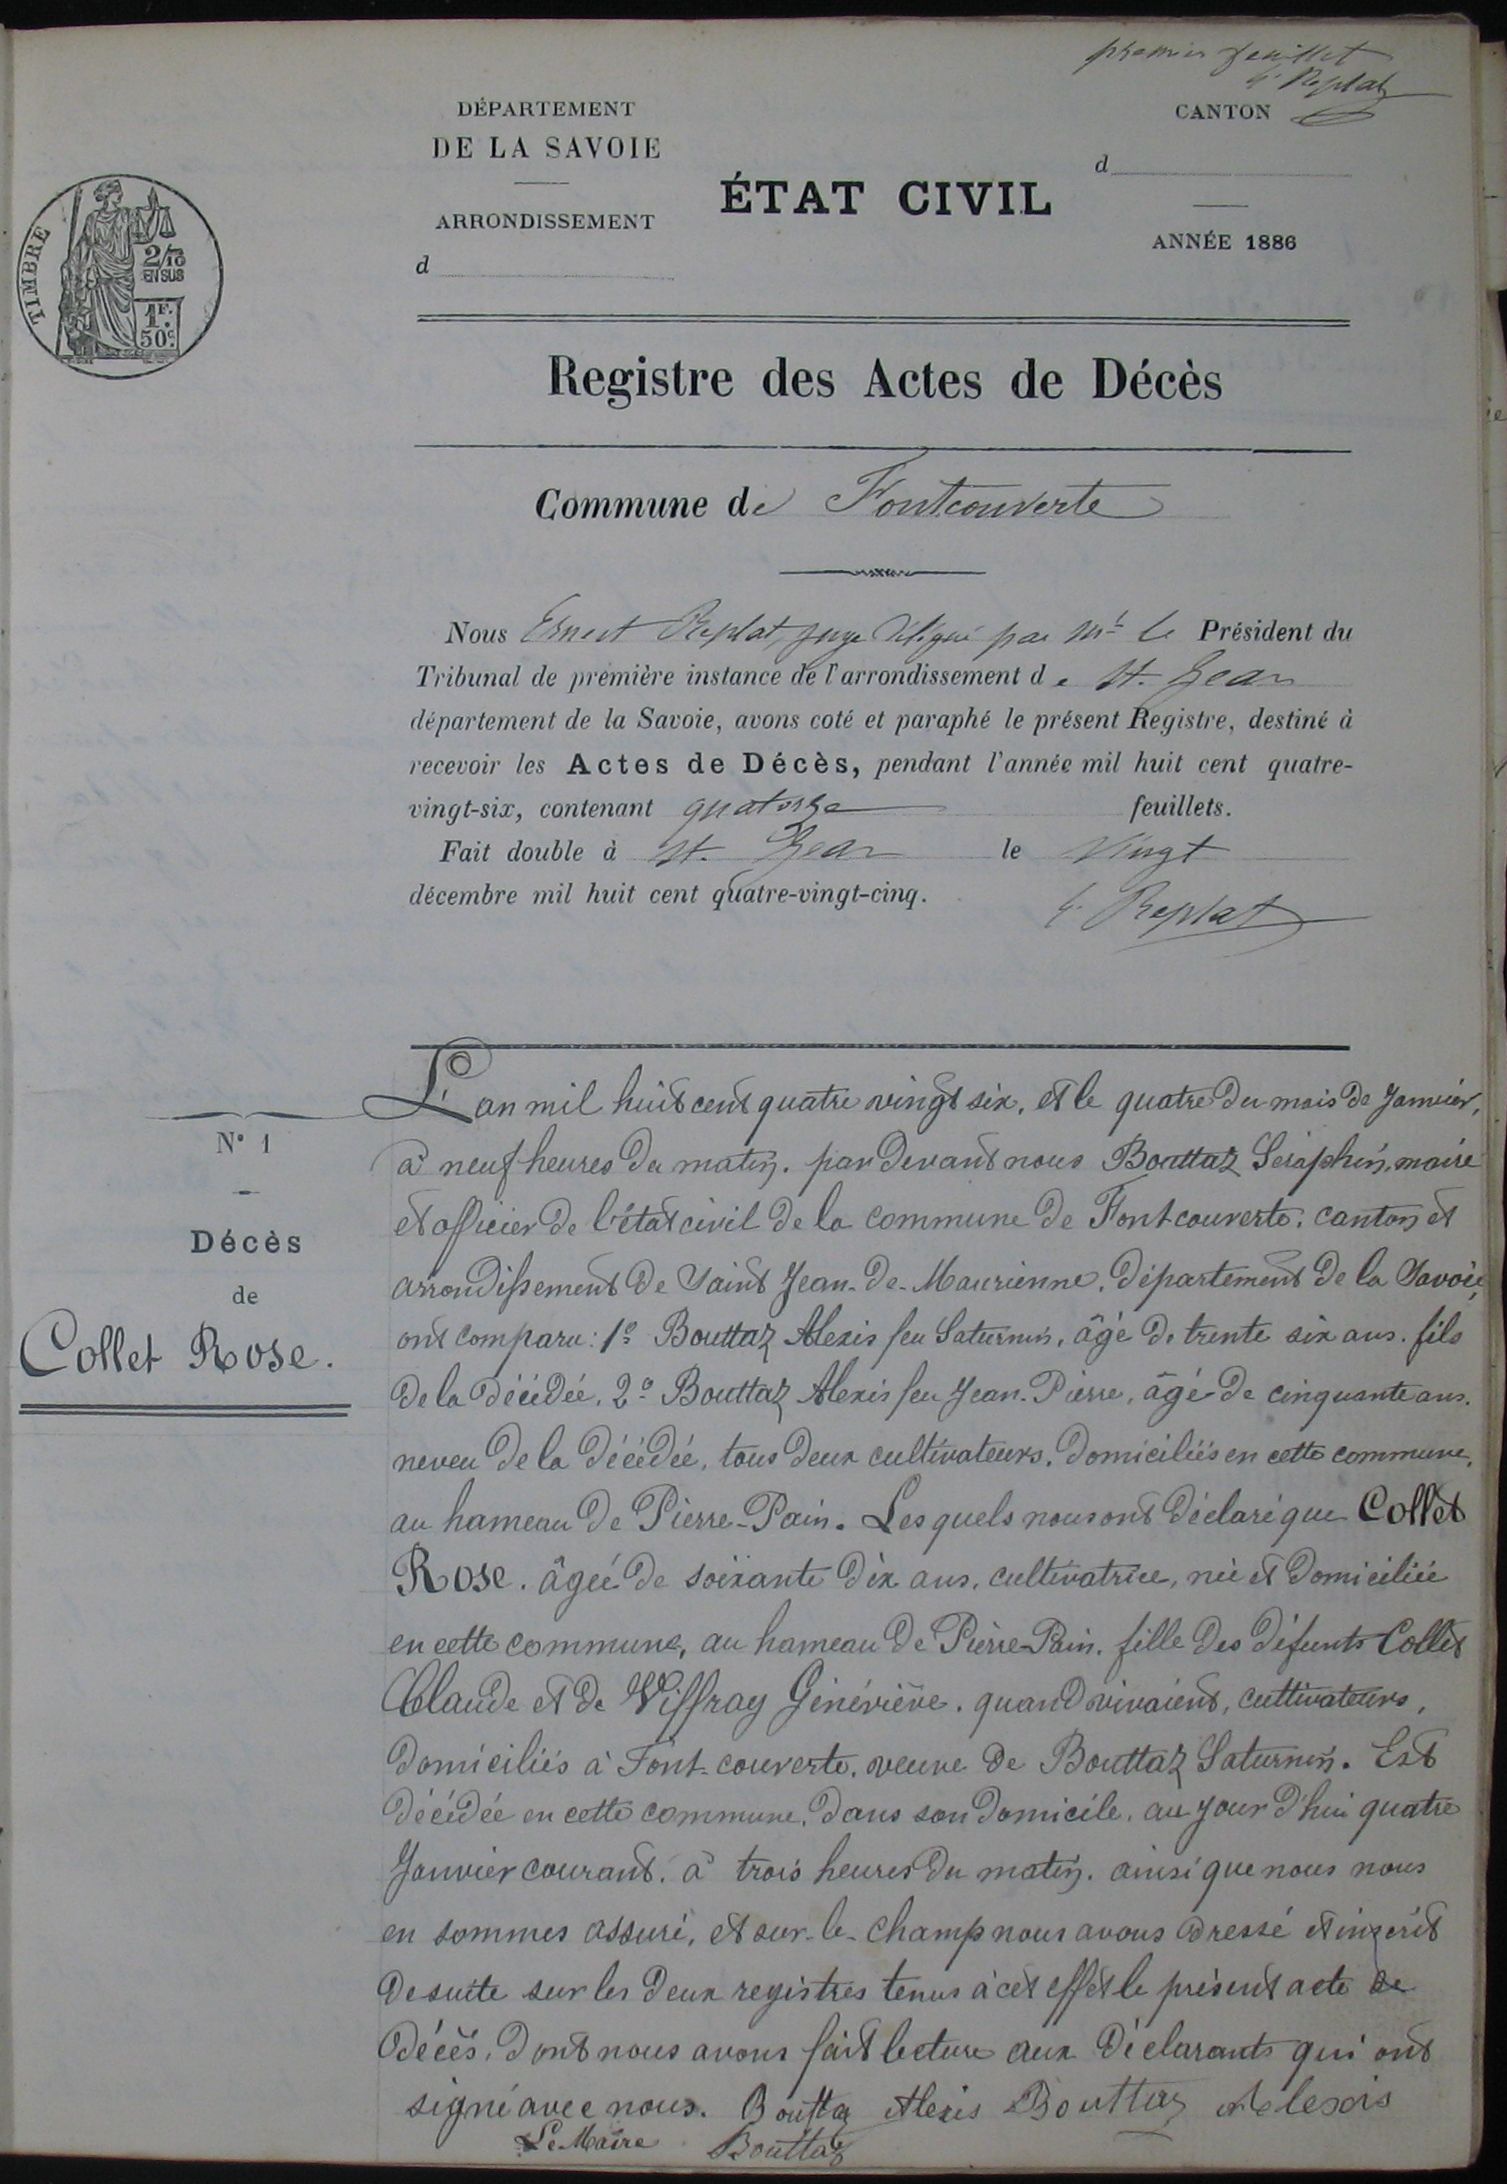 premier feuillet
E. Replat
DÉPARTEMENT
DE LA SAVOIE
ARRONDISSEMENT
d
ÉTAT CIVIL
CANTON
d
ANNÉE 1886
TIMBRE
2/10
EN SUS
1F.
50c.
Registre des Actes de Décès
Commune de Fontcouverte
Nous Ernest Replat, juge délégué par Mr le Président du
Tribunal de première instance de l'arrondissement de St. Jean
département de la Savoie, avons coté et paraphé le présent Registre, destiné à
recevoir les Actes de Décès, pendant l'année mil huit cent quatre-
vingt-six, contenant quatorze feuillets.
Fait double à St. Jean le vingt
décembre mil huit cent quatre-vingt-cinq.
E. Replat
N° 1
Décès
de
Collet Rose.
L'an mil huit cent quatre vingt six, et le quatre du mois de Janvier,
à neuf heures du matin. par devant nous Bouttaz Séraphin, maire
et officier de l'état civil de la commune de Fontcouverte, canton et
arrondissement de Saint Jean-de-Maurienne, département de la Savoie,
ont comparu: 1° Bouttaz Alexis feu Saturnin, âgé de trente six ans. fils
de la décédée, 2° Bouttaz Alexis feu Jean-Pierre, âgé de cinquante ans.
neveu de la décédée, tous deux cultivateurs, domiciliés en cette commune,
au hameau de Pierre-Pain. Les quels nous ont déclaré que Collet
Rose. âgée de soixante dix ans, cultivatrice, née et domiciliée
en cette commune, au hameau de Pierre-Pain. fille des défunts Collet
Claude et de Viffray Généviève. quand vivaient, cultivateurs,
domiciliés à Font-couverte, veuve de Bouttaz Saturnin. Est
décédée en cette commune, dans son domicile, au jour d'hui quatre
Janvier courant, à trois heures du matin. ainsi que nous nous
en sommes assuré, et sur-le-champ nous avons dressé et inscrit
de suite sur les deux registres tenus à cet effet le présent acte de
décès, dont nous avons fait lecture aux déclarants qui ont
signé avec nous. Bouttaz Alexis Bouttaz Alexis
Le Maire Bouttaz